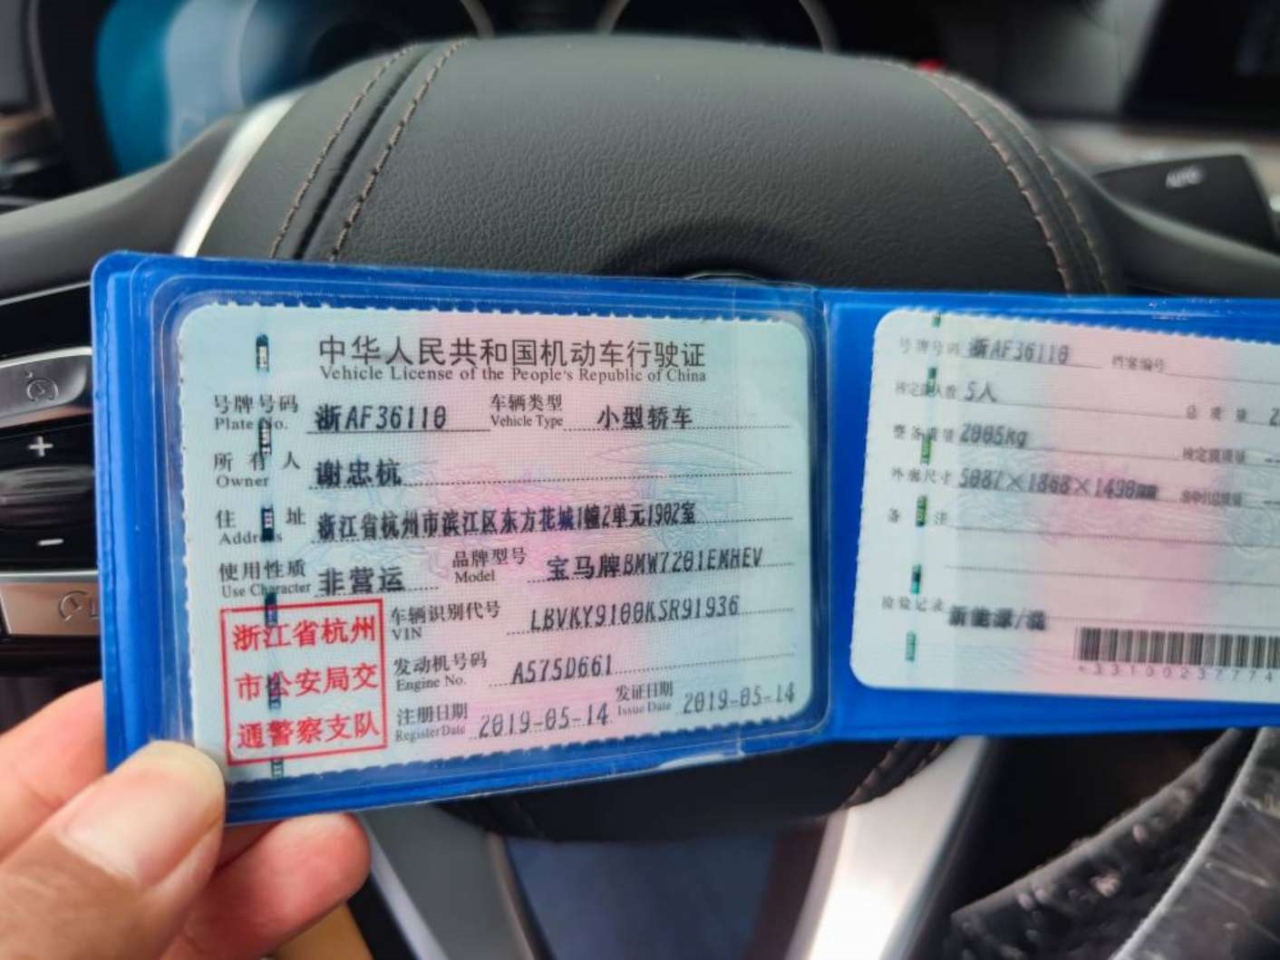 AUTO
+
−
中华人民共和国机动车行驶证
Vehicle License of the People's Republic of China
号牌号码 浙AF36110 车辆类型 小型轿车
Plate No. Vehicle Type
所有人 谢忠杭
Owner
住址 浙江省杭州市滨江区东方花城1幢2单元1902室
Address
使用性质 非营运 品牌型号 宝马牌BMW7201EMHEV
Use Character Model
浙江省杭州
市公安局交
通警察支队
车辆识别代号 LBVKY9100KSR91936
VIN
发动机号码 A575D661
Engine No.
注册日期 2019-05-14 发证日期 2019-05-14
Register Date Issue Date
号牌号码 浙AF36110 档案编号
核定载人数 5人 总质量 2
整备质量 2005kg 核定载质量
外廓尺寸 5087×1868×1490mm
备注
检验记录 新能源/混
*33100237774